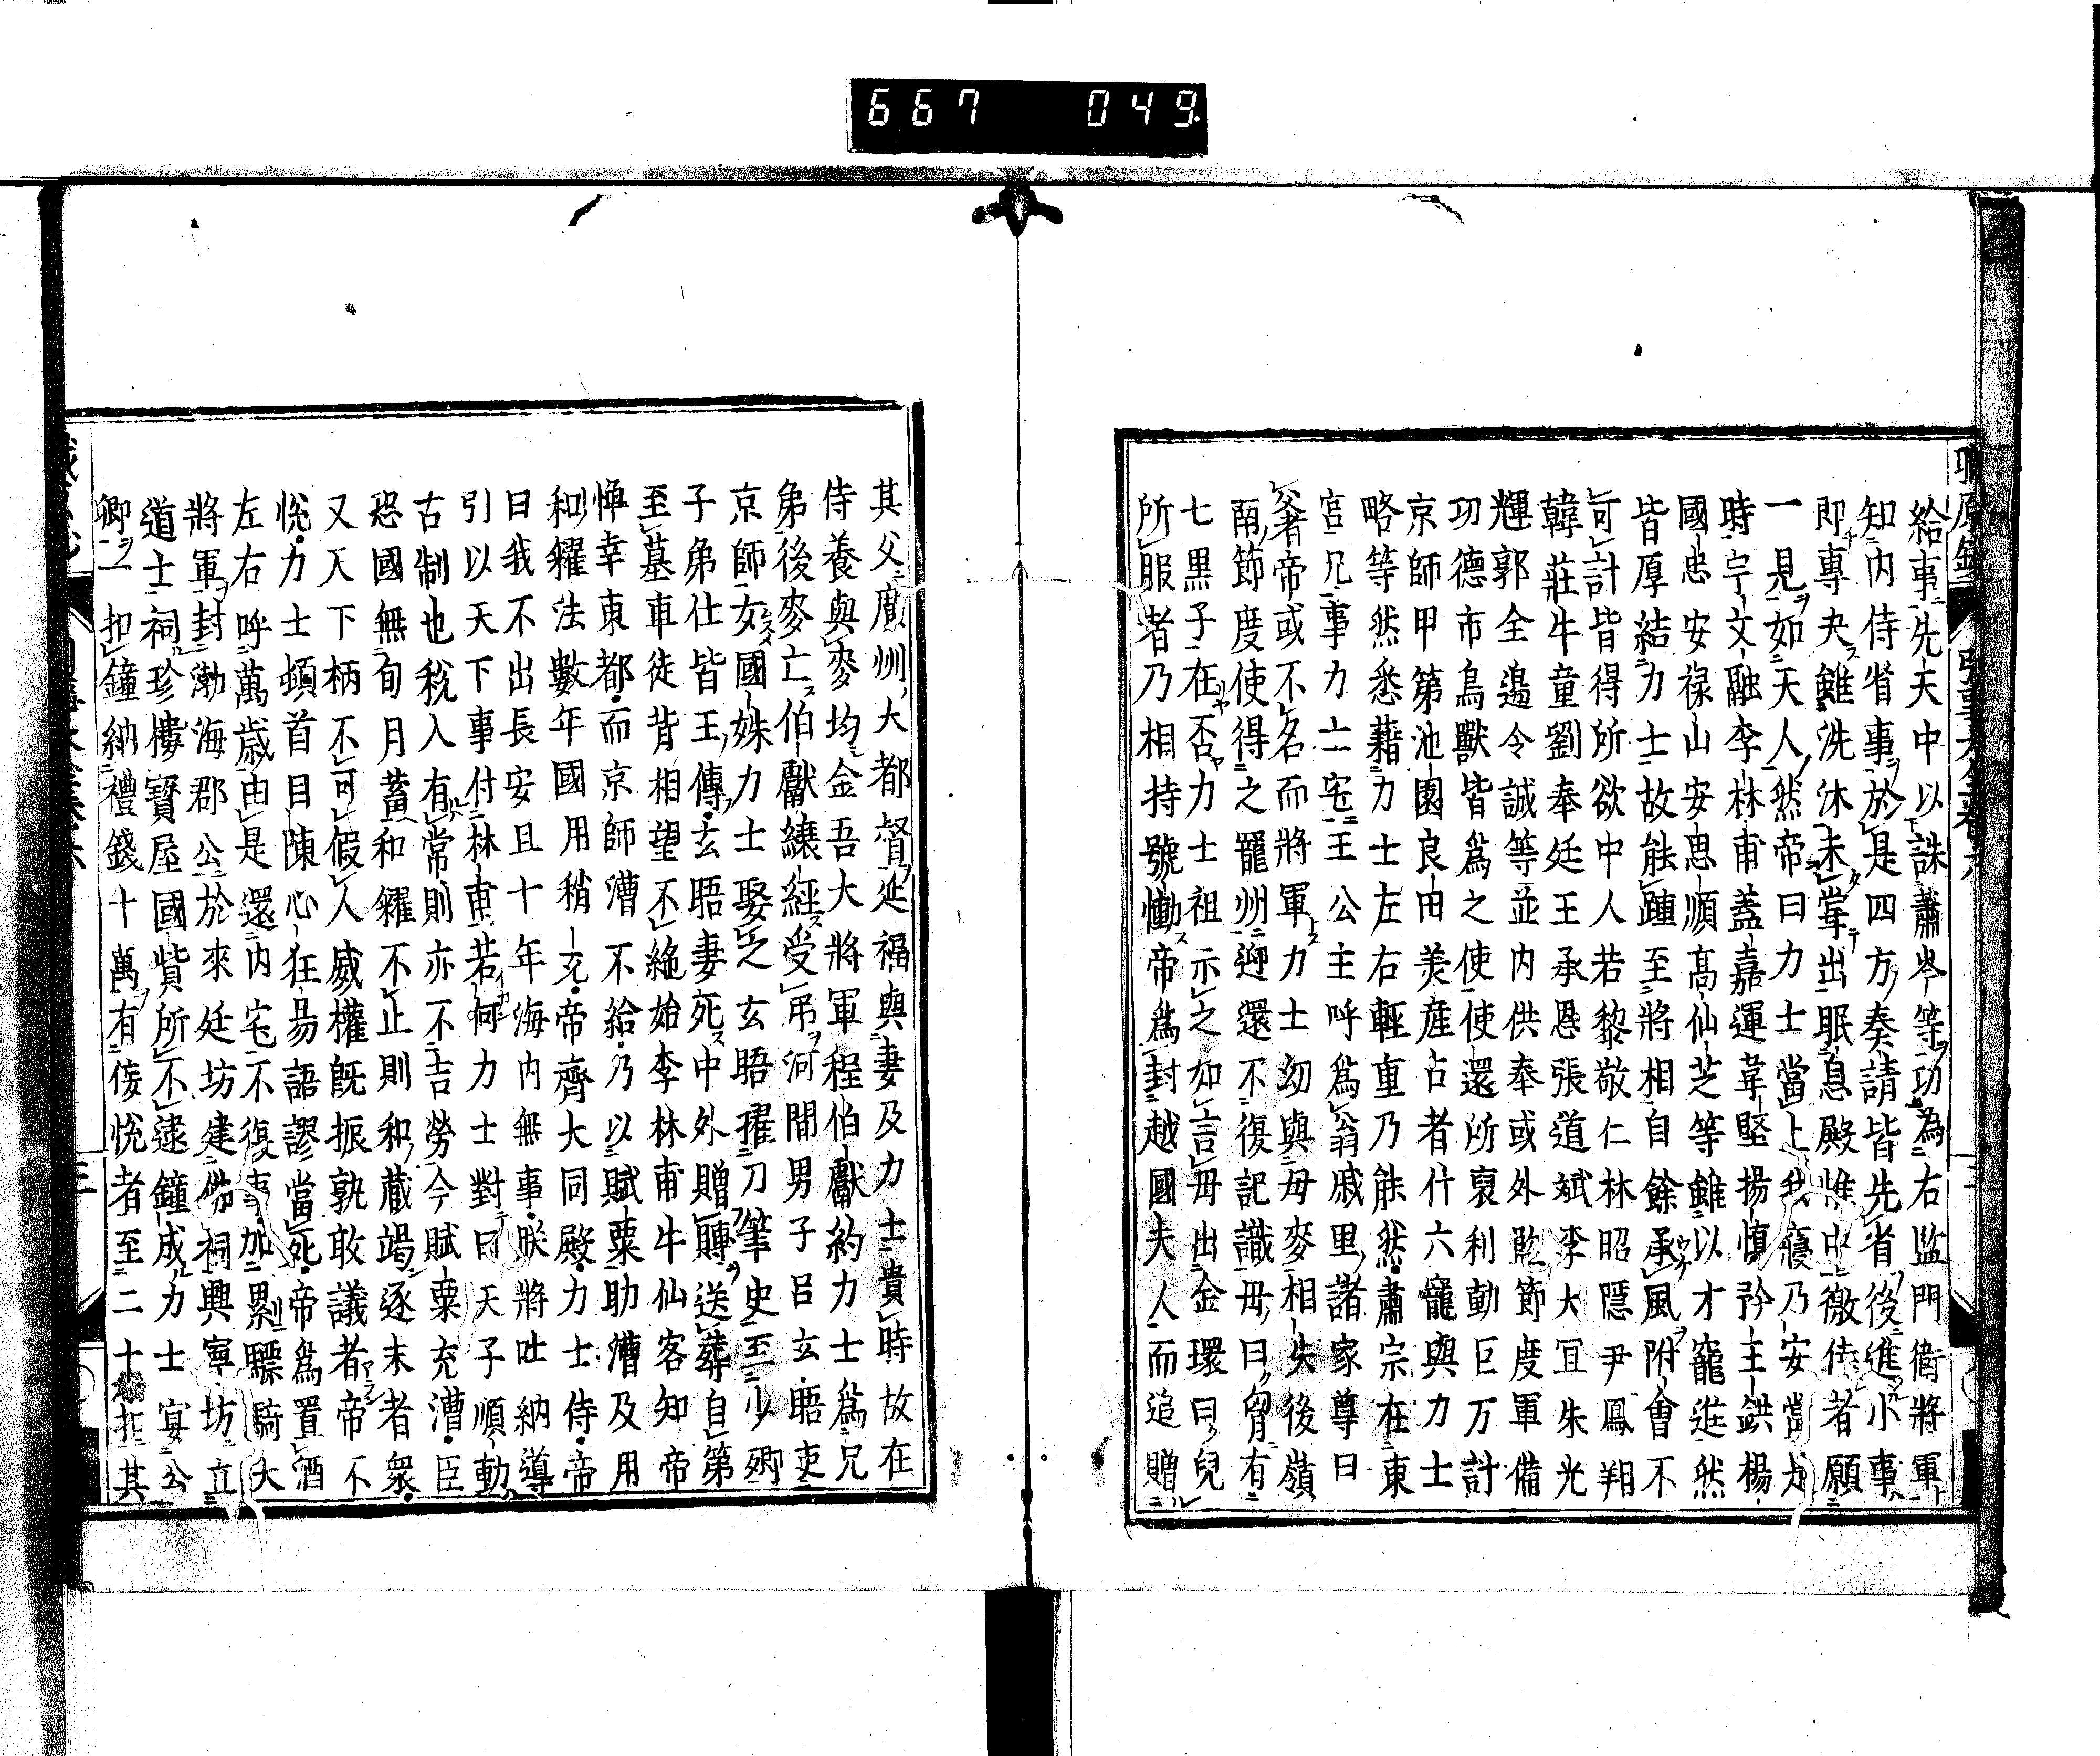 667 049
給事先天中以誅蕭岑等功為右監門衛將軍
知内侍省事於是四方奏請皆先省後進小事
即專决雖洗沐未嘗出眠息殿帷中徼倖者願
一見如天人然帝曰力士當上我寢乃安當是
時宇文融李林甫蓋嘉運韋堅楊慎矜王鉷楊
國忠安禄山安思順髙仙芝等雖以才寵進然
皆厚結力士故能踵至將相自餘承風附會不
可計皆得所欲中人若黎敬仁林昭隱尹鳳翔
韓莊牛童劉奉廷王承恩張道斌李大宜朱光
輝郭全邉令誠等並内供奉或外監節度軍備
功德市鳥獸皆爲之使使還所裒利動巨万計
京師甲第池園良田美産占者什六寵與力士
略等然悉藉力士左右輕重乃能然肅宗在東
宫兄事力士宅王公主呼爲翁戚里諸家尊曰
㸙者帝或不名而將軍力士㓜與毋麥相失後嶺
南節度使得之瀧州迎還不復記識毋曰胷有
七黒子在否力士袒示之如言毋出金環曰兒
所服者乃相持號慟帝爲封越國夫人而追贈
其父廣州大都督延福與妻及力士貴時故在
侍養與麥均金吾大將軍程伯獻約力士爲兄
弟後麥亡伯獻縗絰受吊河間男子吕玄晤吏
京師女國姝力士娶之玄晤擢刀筆史至少卿
子弟仕皆王傳玄晤妻死中外贈賻送葬自第
至墓車徒背相望不絶始李林甫牛仙客知帝
憚幸東都而京師漕不給乃以賦粟助漕及用
和糴法數年國用稍充帝齊大同殿力士侍帝
曰我不出長安且十年海内無事朕將吐納導
引以天下事付林甫若何力士對曰天子順動
古制也税入有常則亦不吉勞今賦粟充漕臣
恐國無旬月蓄和糴不止則和藏竭逐末者衆
又天下柄不可假人威權既振孰敢議者帝不
悦力士頓首目陳心狂昜語謬當死帝爲置酒
左右呼萬歳由是還内宅不復事加累驃騎大
將軍封渤海郡公於來廷坊建佛祠興寧坊立
道士祠珍樓寳屋國貲所不逮鐘成力士宴公
卿一扣鐘納禮錢十萬有佞悦者至二十扣其